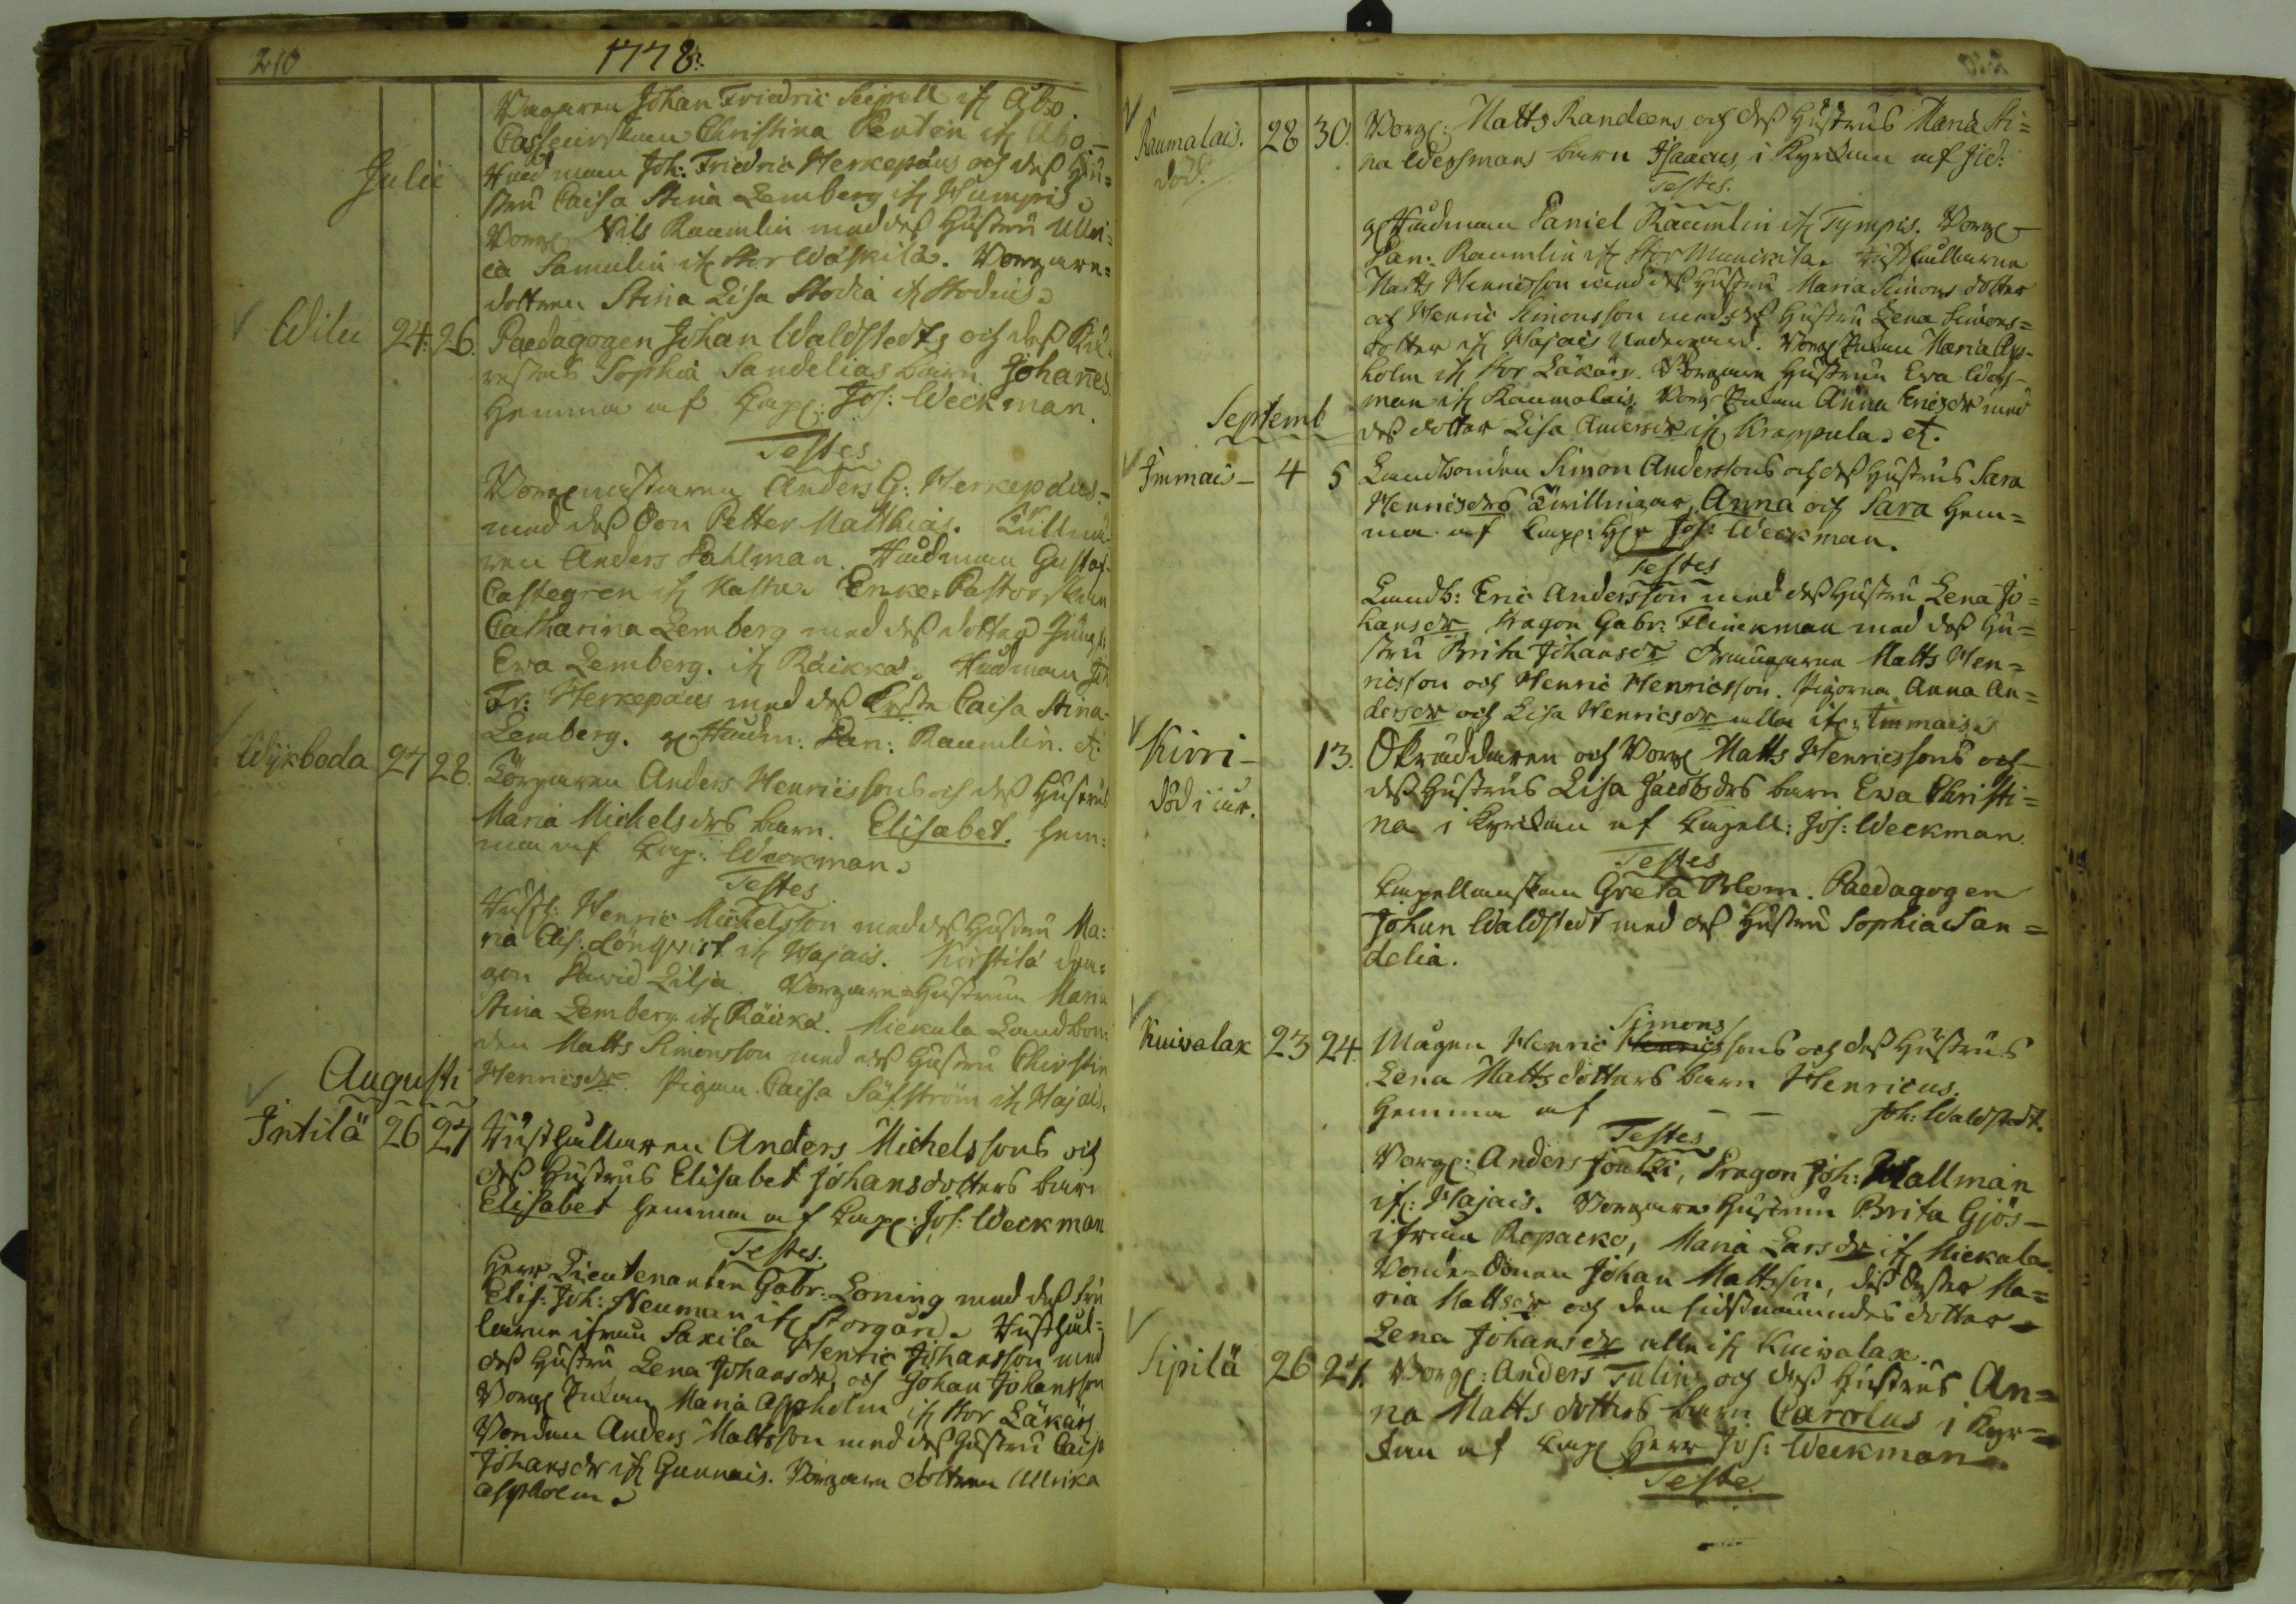 210
1778.
Vagaren Johan Friedric Seipell if Åbo.
Casseurskan Christina Pentin if Åbo.
Julii
Joh: Friedric Herkepæus och deß Hu=
stru Caisa Stina Lemberg if
Borg Nils Raumlin med deß Hustru Ulri=
ca Samulin if Stor Wäskilä. Borgare=
dottren Stina Lisa Stodia if Stodius.
24. 26. Paedagogen Johan Waldstedts och deß Kiä=
restas Sophia Sandelias barn Johañes
Hemma af Capl: Jos: Weckman.
Testes
Borgmästaren Anders G: Herkepæus
med deß Son Petter Matthias.
Anders Dahlman. Gustaf
Castegren if Enke Pastorskan
Catharina Lemberg med deß dotter Jungf:
Ewa Lemberg. if Räikkä.
Fr: Herkepæus med deß Caisa Stina
Lemberg. Dan: Raumlin. etc
Wijkboda 27 28. Anders Henricssons och deß Hustrus
Maria Michelsdrs barn. Elisabet. Hem=
ma af Cap: Weckman.
Testes
Henric Michelsson med deß Hustru Ma=
ria Elis: Lönqvist if Hajais. Kirstilä dra=
gon David Lilja. Borgare Hustrun Maria
Stina Lemberg if Räickä. Miekala Landbon=
den Matts Simonsson med deß Hustru Christin
Henricsdr. Pigan Caisa Säfström if Hajais.
Augusti
Intilä 26 27 Rusthållaren Anders Michelssons och
deß Hustrus Elisabet Johansdotters barn
Elisabet Hemma af Capl: Jos: Weckman
Testes.
Herr Lieutenanten Gabr: Loning med deß fru
Elis: Joh: Neuman if Storgård. Rusthål=
larne ifrån Saxila Henric Johansson med
deß Hustru Lena Johansdr, och Johan Johansson
Borg Enkan Maria Aspholm if Stor Läkärs
Bonden Anders Mattsson med deß Hustru Caisa
Johansdr if Gunnais. Borgare dottren Ullrika
Aspholm.
Raumalais. 28 30. Borgl: Matts Randeens och deß Hustrus Maria Sti=
död. na Wessmans barn Isaacus, i Kyrckan af Jid:
Testes.
Daniel Raumlin if Tympis. Borgl
Dan: Raumlin if Stor Munikila. Rusthållarne
Matts Henricsson med deß Hustru Maria Simons dotter
och Henric Simonsson med deß Hustru Lena Simons=
dotter if Hajais Nedergård. Borgl Enkan Maria Asp=
holm if Stor Läkärs. Borgare Hustrun Ewa Wess=
man if Raumalais. Borg Enkan Anna Ericsdr med
deß dotter Lisa Andersdr if Krappula. etc.
Septemb
Immais 4 5 Landbonden Simon Anderssons och deß Hustrus Sara
Henricsdrs Twillingar, Anna och Sara Hem=
ma af Capl: Hr Jos: Weckman.
Testes
Landb: Eric Andersson med deß Hustru Lena Jo=
hansdr Dragon Gabr: Flinckman med deß Hu=
stru Brita Johansdr Drängarna Matts Hen=
ricsson och Henric Henricsson. Pigorna Anna An=
dersdr och Lisa Henricsdr alla if: Immais.
Kirri 13. Skräddaren och Borgl Matts Henricssons och
död i år. deß Hustrus Lisa Jacobsdrs barn Ewa Christi=
na i Kyrckan af Capell: Jos: Weckman.
Testes
Capellanskan Greta Blom. Paedagogen
Johan Waldstedt med deß Hustru Sophia San=
delia.
Simons
Kuivalax 23 24 Mågen Henric Henricssons och deß Hustrus
Lena Mattsdotters barn Henricus.
Hemma af – – Joh: Waldstedt.
Testes
Borgl: Anders Joutzi, Dragon Joh: Wallman
if: Hajais. Borgare Hustrun Brita Gjös
ifrån Ropacko, Maria Larsdr if Miekala.
Bonde-Sonen Johan Mattsson, deß Syster Ma=
ria Mattsdr och den sidstnämndes dotter
Lena Johansdr alla if Kuivalax.
Sipilä 26 27. Borgl: Anders Tulins och deß Hustrus An=
na Matts dotters barn Carolus i Kyr=
kan af Capl Herr Jos: Weckman.
Teste.